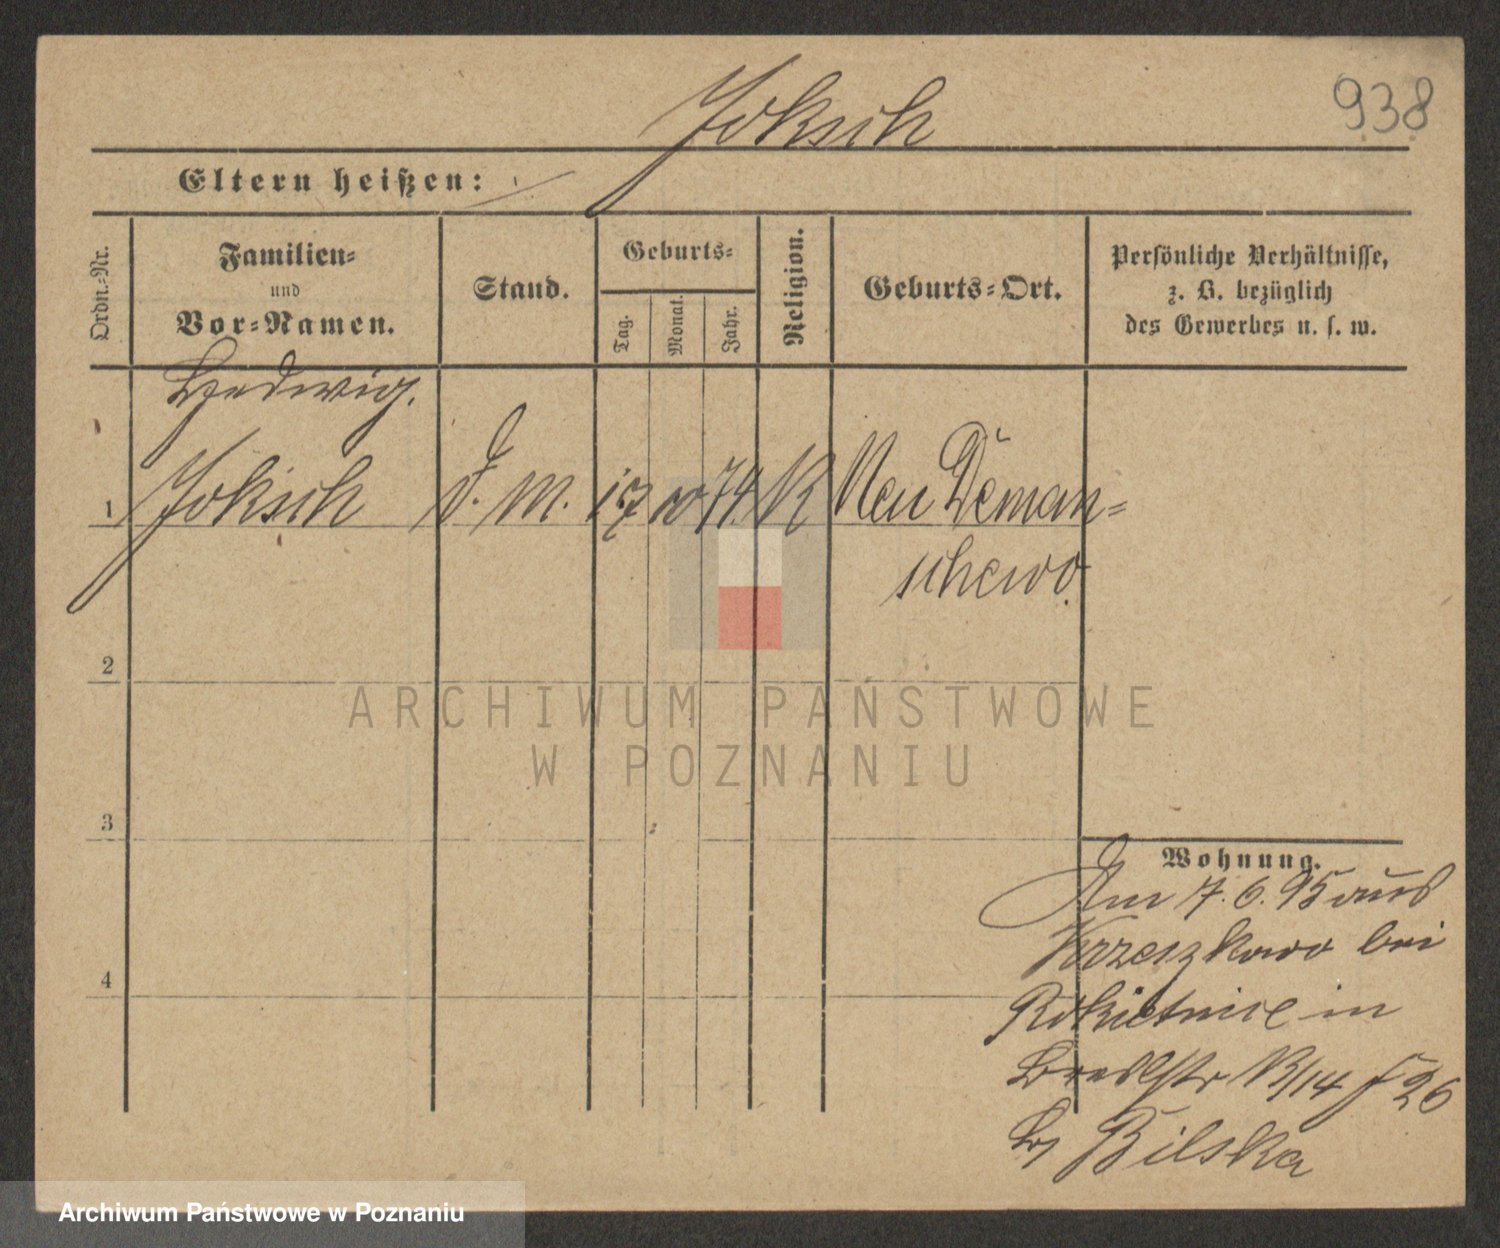 Joksch
938
Eltern heißen:
Ordn.-Nr.
Familien-
und
Vor-Namen.
Stand.
Geburts-
Tag.
Monat.
Jahr.
Religion.
Geburts-Ort.
Persönliche Verhältnisse,
z. B. bezüglich
des Gewerbes u. s. w.
Hedwig.
1 Joksch D. M. 17 10 74 K Neu Deman-
schewo
2
3
4
Wohnung.
Am 7.6.95 aus
Krzeszkowo bei
Rokietnice in
Breslstr 13/14 26
b/ Bilska
ARCHIWUM PAŃSTWOWE
W POZNANIU
Archiwum Państwowe w Poznaniu